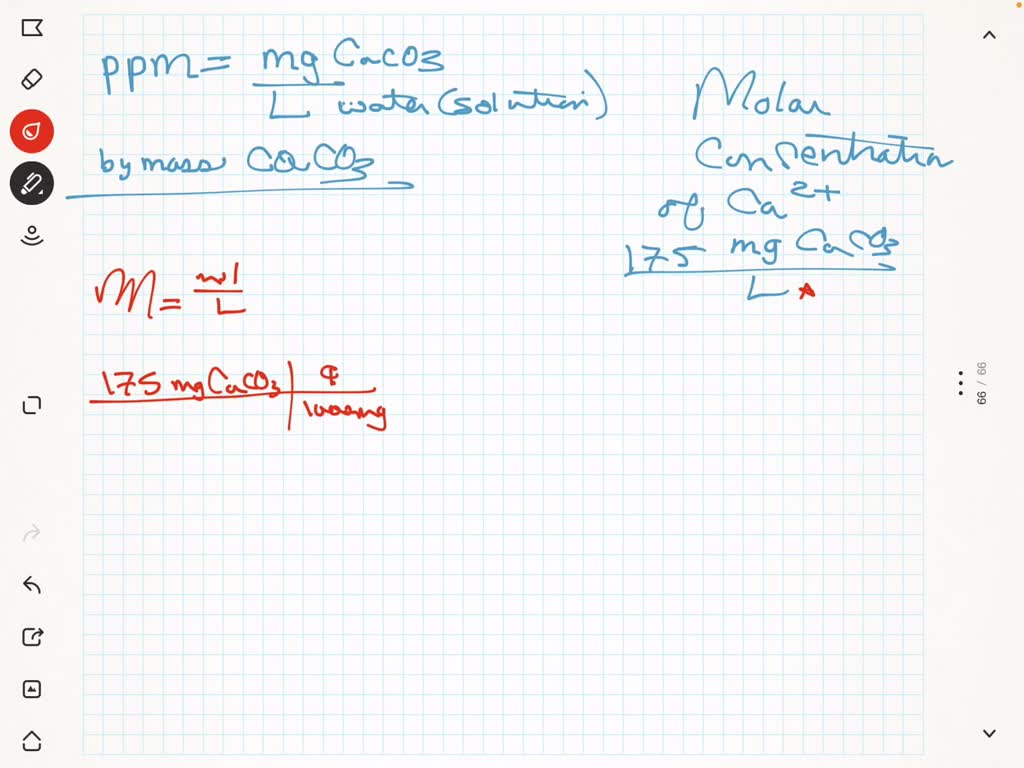 ppm = mg CaCO3
L water (solution)
by mass CaCO3
Molar
Consentration
of Ca2+
175 mg CaCO3
L
M = mol
L
175 mg CaCO3
1000mg
66 / 66